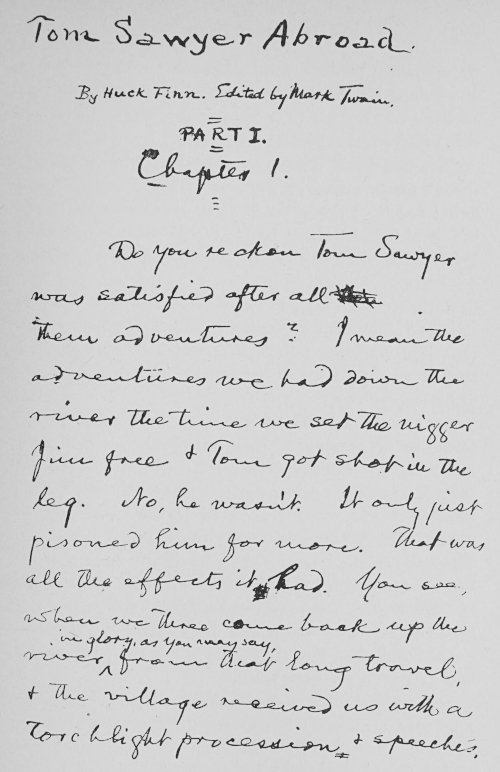 Tom Sawyer Abroad.
By Huck Finn. Edited by Mark Twain.
PART I.
Chapter 1.
Do you reckon Tom Sawyer
was satisfied after all
them adventures? I mean the
adventures we had down the
river the time we set the nigger
Jim free & Tom got shot in the
leg. No, he wasn't. It only just
pisoned him for more. That was
all the effects it had. You see,
when we three come back up the
in glory, as you may say,
river, from that long travel,
& the village received us with a
torchlight procession, & speeches,